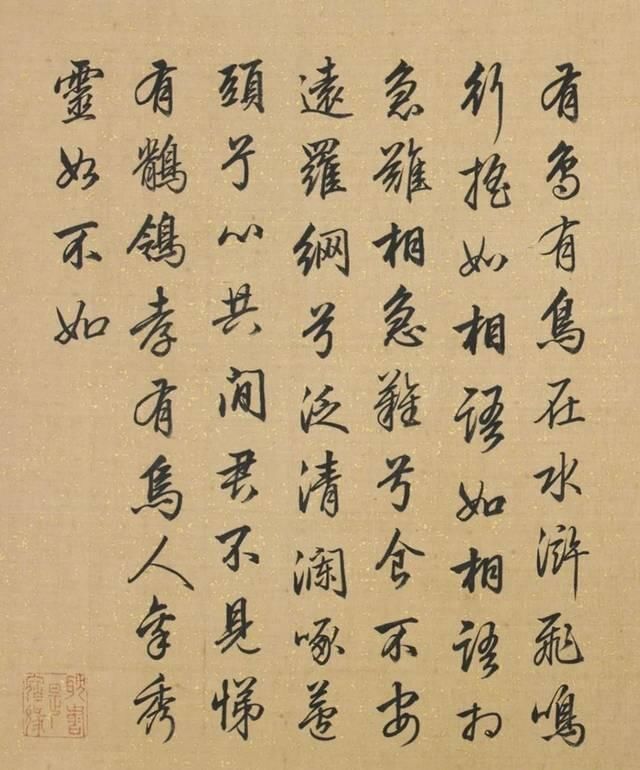 有鳥有鳥在水滸飛鳴
行搖如相語如相語相
急難相急難兮食不安
遠羅網兮泛清瀾啄蘆
頭兮心共閒君不見悌
有鶺鴒孝有烏人秀
靈如不如